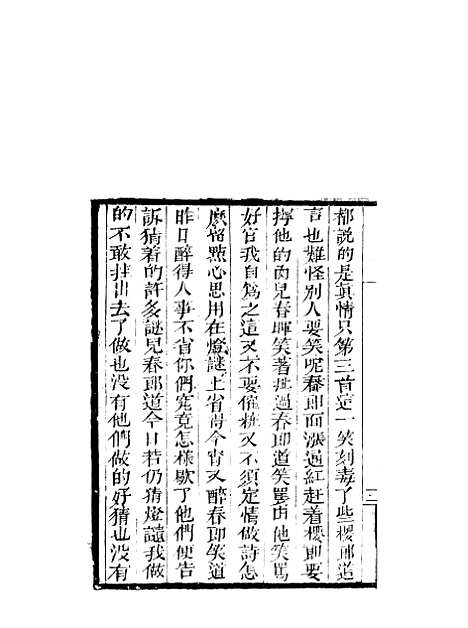 都說的是眞情只第三首這一笑刻毒了些櫻郎道
言也難怪別人要笑呢春郎面漲通紅赶着櫻郎要
擰他的肉兒春暉笑著拉過春郎道笑罵由他笑罵
好官我自爲之這又不要催粧又不須定情做詩怎
麽留點心思用在燈謎上省得今宵又醉春郎笑道
昨日醉得人事不省你們究竟怎樣歇了他們便告
訴猜着的許多謎兒春郎道今日若仍猜燈謎我做
的不敢拄出去了做也没有他們做的好猜也没有